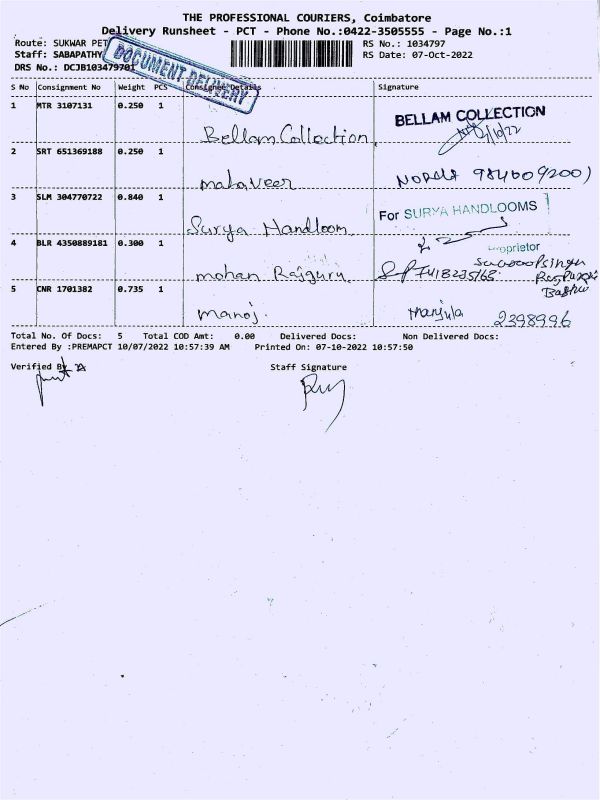 THE PROFESSIONAL COURIERS, Coimbatore
Delivery Runsheet - PCT - Phone No.:0422-3505555 - Page No.:1
Route: SUKWAR PET
RS No.: 1034797
Staff: SABAPATHY
RS Date: 07-Oct-2022
DRS No.: DCJB103479701
DOCUMENT DELIVERY
S No Consignment No Weight PCS Consignee Details Signature
1 MTR 3107131 0.250 1 Bellam Collection BELLAM COLLECTION
2 SRT 651369188 0.250 1 mahaveer
3 SLM 304770722 0.840 1 Surya Handloom For SURYA HANDLOOMS
4 BLR 4350889181 0.300 1 mohan Rajguru
5 CNR 1701382 0.735 1 manoj. Manjula 2398996
Total No. Of Docs: 5 Total COD Amt: 0.00 Delivered Docs: Non Delivered Docs:
Entered By :PREMAPCT 10/07/2022 10:57:39 AM Printed On: 07-10-2022 10:57:50
Verified By
Staff Signature